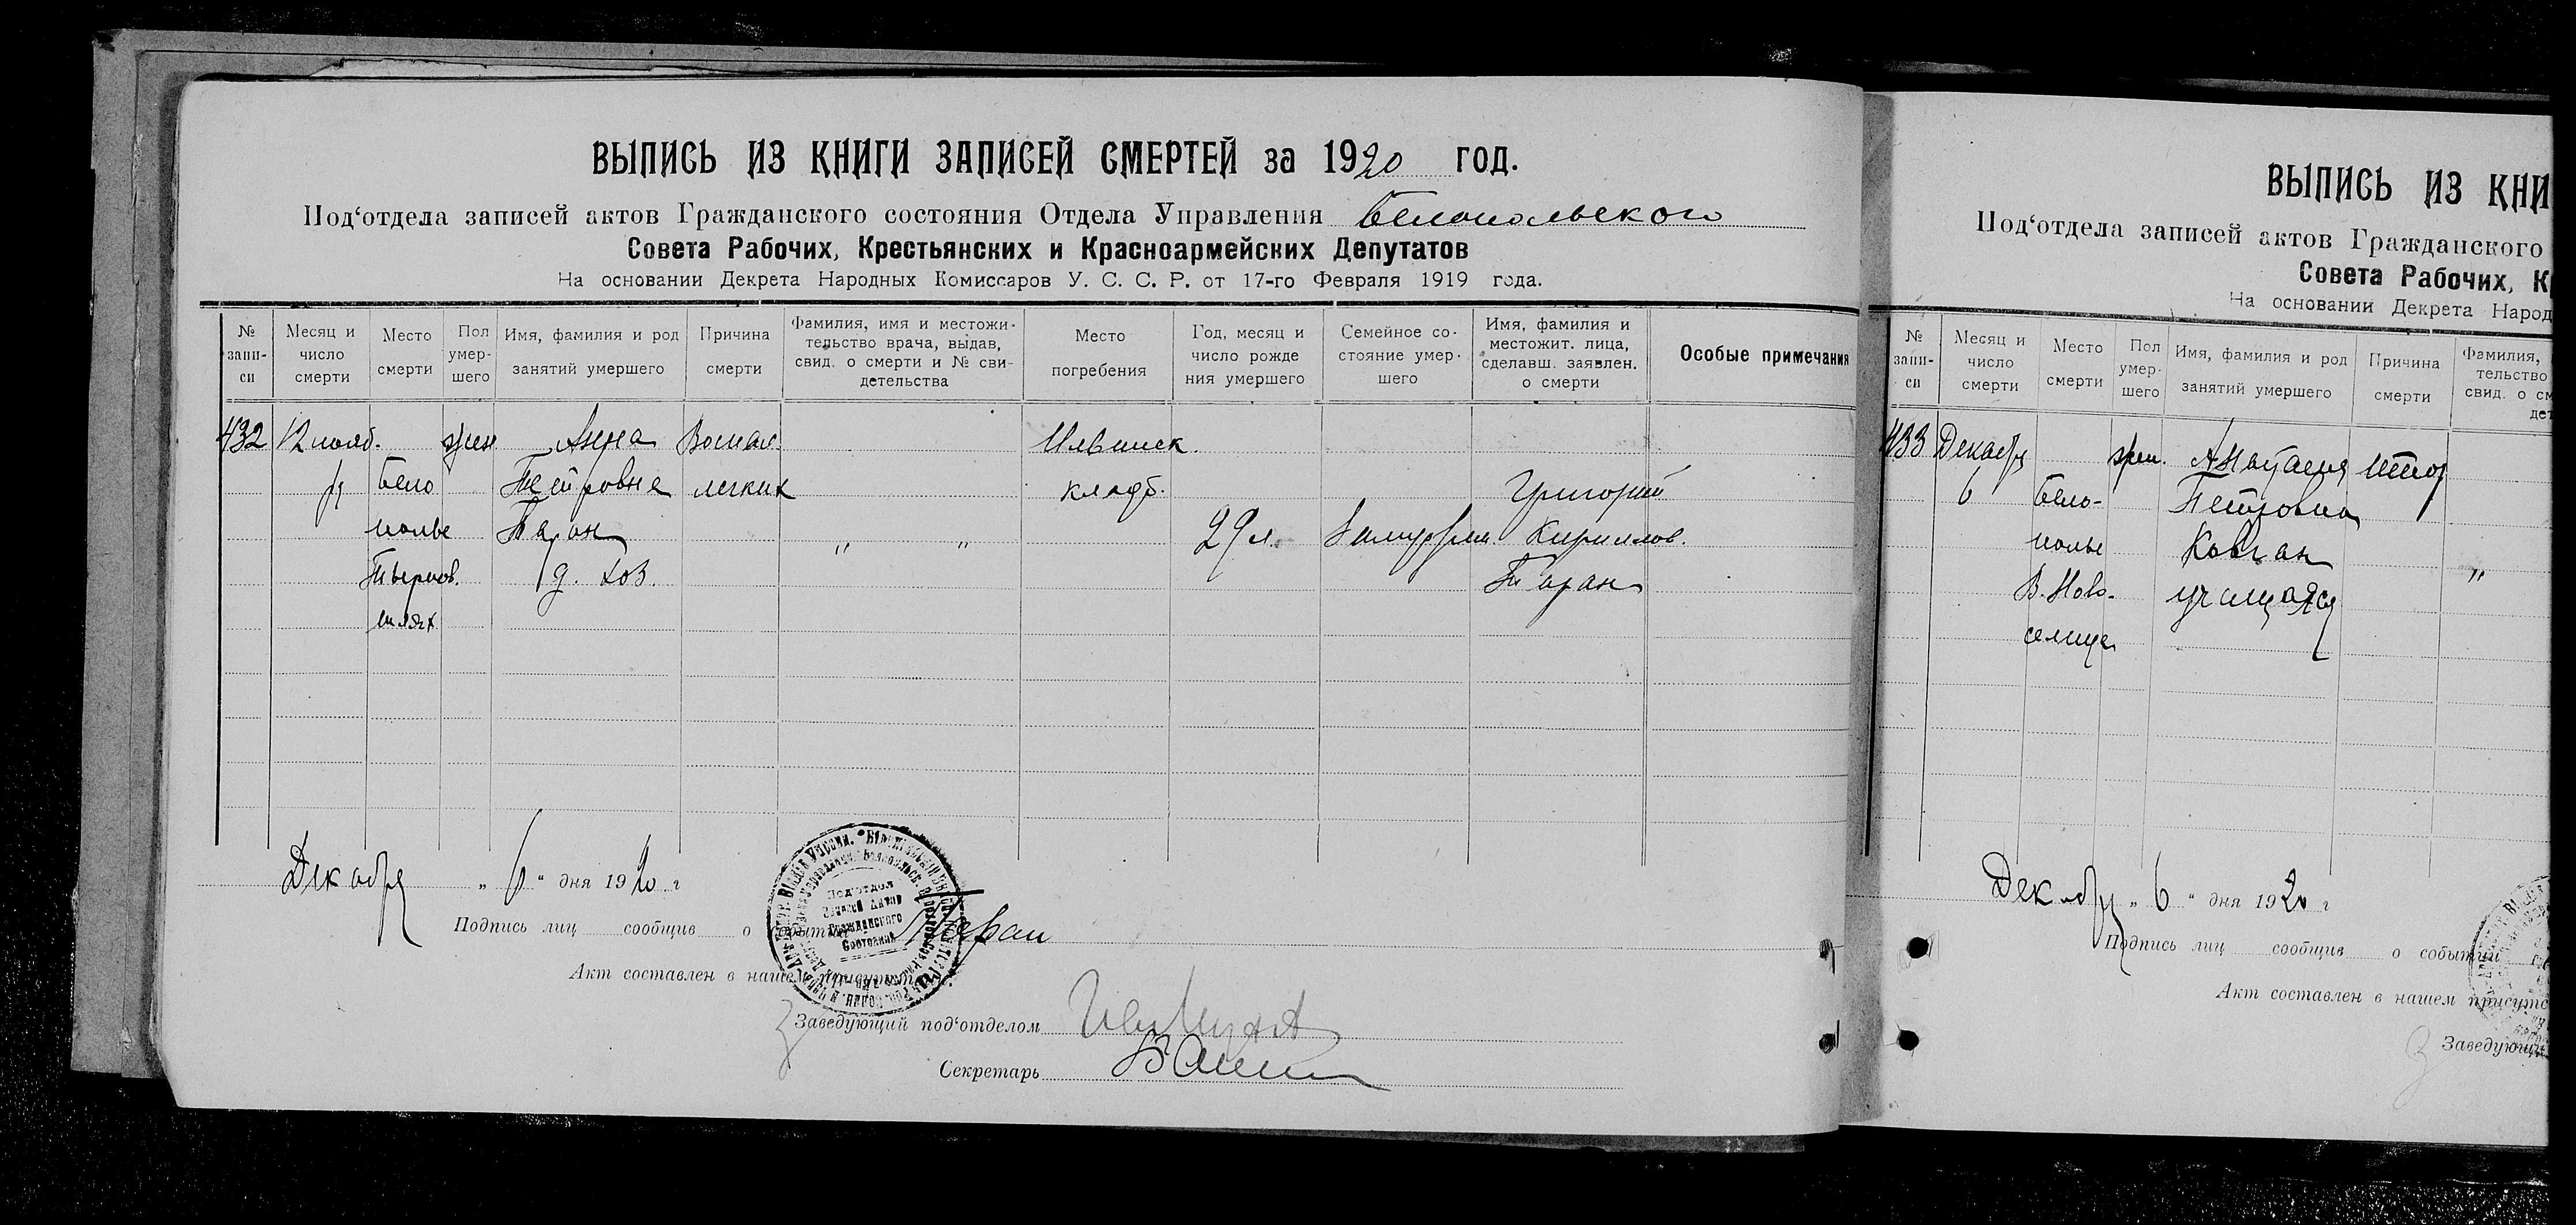 ВЫПИСЬ ИЗ КНИГИ ЗАПИСЕЙ СМЕРТЕЙ за 1920 год.
Под‘отдела записей актов Гражданского состояния Отдела Управления Белопольского
Совета Рабочих, Крестьянских и Красноармейских Депутатов
На основании Декрета Народных Комиссаров У. С. С. Р. от 17-го Февраля 1919 года.
№ запи- си
Месяц и число смерти
Место смерти
Пол умер- шего
Имя, фамилия и род занятий умершего
Причина смерти
Фамилия, имя и местожи- тельство врача, выдав, свид. о смерти и № сви- детельства
Место погребения
Год, месяц и число рожде ния умершего
Семейное со- стояние умер- шего
Имя, фамилия и местожит. лица, сделавш. заявлен. о смерти
Особые примечания
432 12 нояб. жен Анна Воспал. Ильинск.
ря Бело Петровна легких кладб. Григорий
полье Таран " " 29 л. Замужем Кириллов.
д. хоз. Таран
шлях
Декабря „ 6 “ дня 1920 г
Подпись лиц сообщив о событии Таран
Акт составлен в нашем присутст
Заведующий под‘отделом
Секретарь
ВЫПИСЬ ИЗ КНИ
Под‘отдела записей актов Гражданского
Совета Рабочих, К
На основании Декрета Народ
№ запи- си
Месяц и число смерти
Место смерти
Пол умер- шего
Имя, фамилия и род занятий умершего
Причина смерти
Фамилия,
тельство
свид. о см
дет
433 Декабря жен. Анастасия
6 Бело- Петровна
полье Ковган "
В. Ново- учащаяся
селица
Декабря „ 6 “ дня 1920 г
Подпись лиц сообщив о событии
Акт составлен в нашем присутс
Заведующи